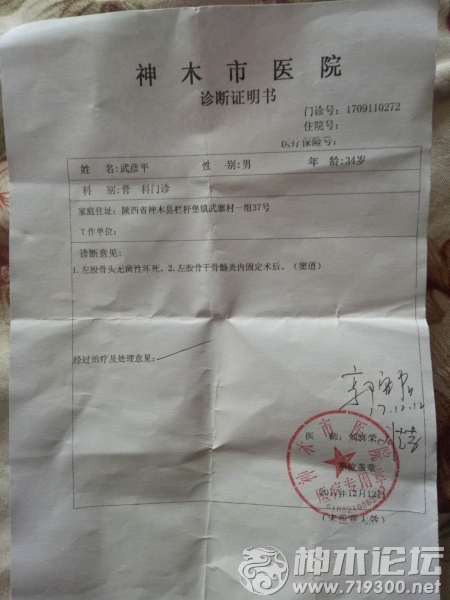 神木市医院
诊断证明书
门诊号：1709110272
住院号：
医疗保险号：
姓 名：武彦平 性 别：男 年 龄：34岁
科 别：骨 科门诊
家庭住址：陕西省神木县栏杆堡镇武寨村一组37号
工作单位：
诊断意见：
1.左股骨头无菌性坏死。2.左股骨干骨髓炎内固定术后。（窦道）
经过治疗及处理意见：
17.12.12
医 师：刘喜荣
神木市医院
医院专用章
单位盖章
2017年12月12日
（未盖章无效）
神木论坛
www.719300.net